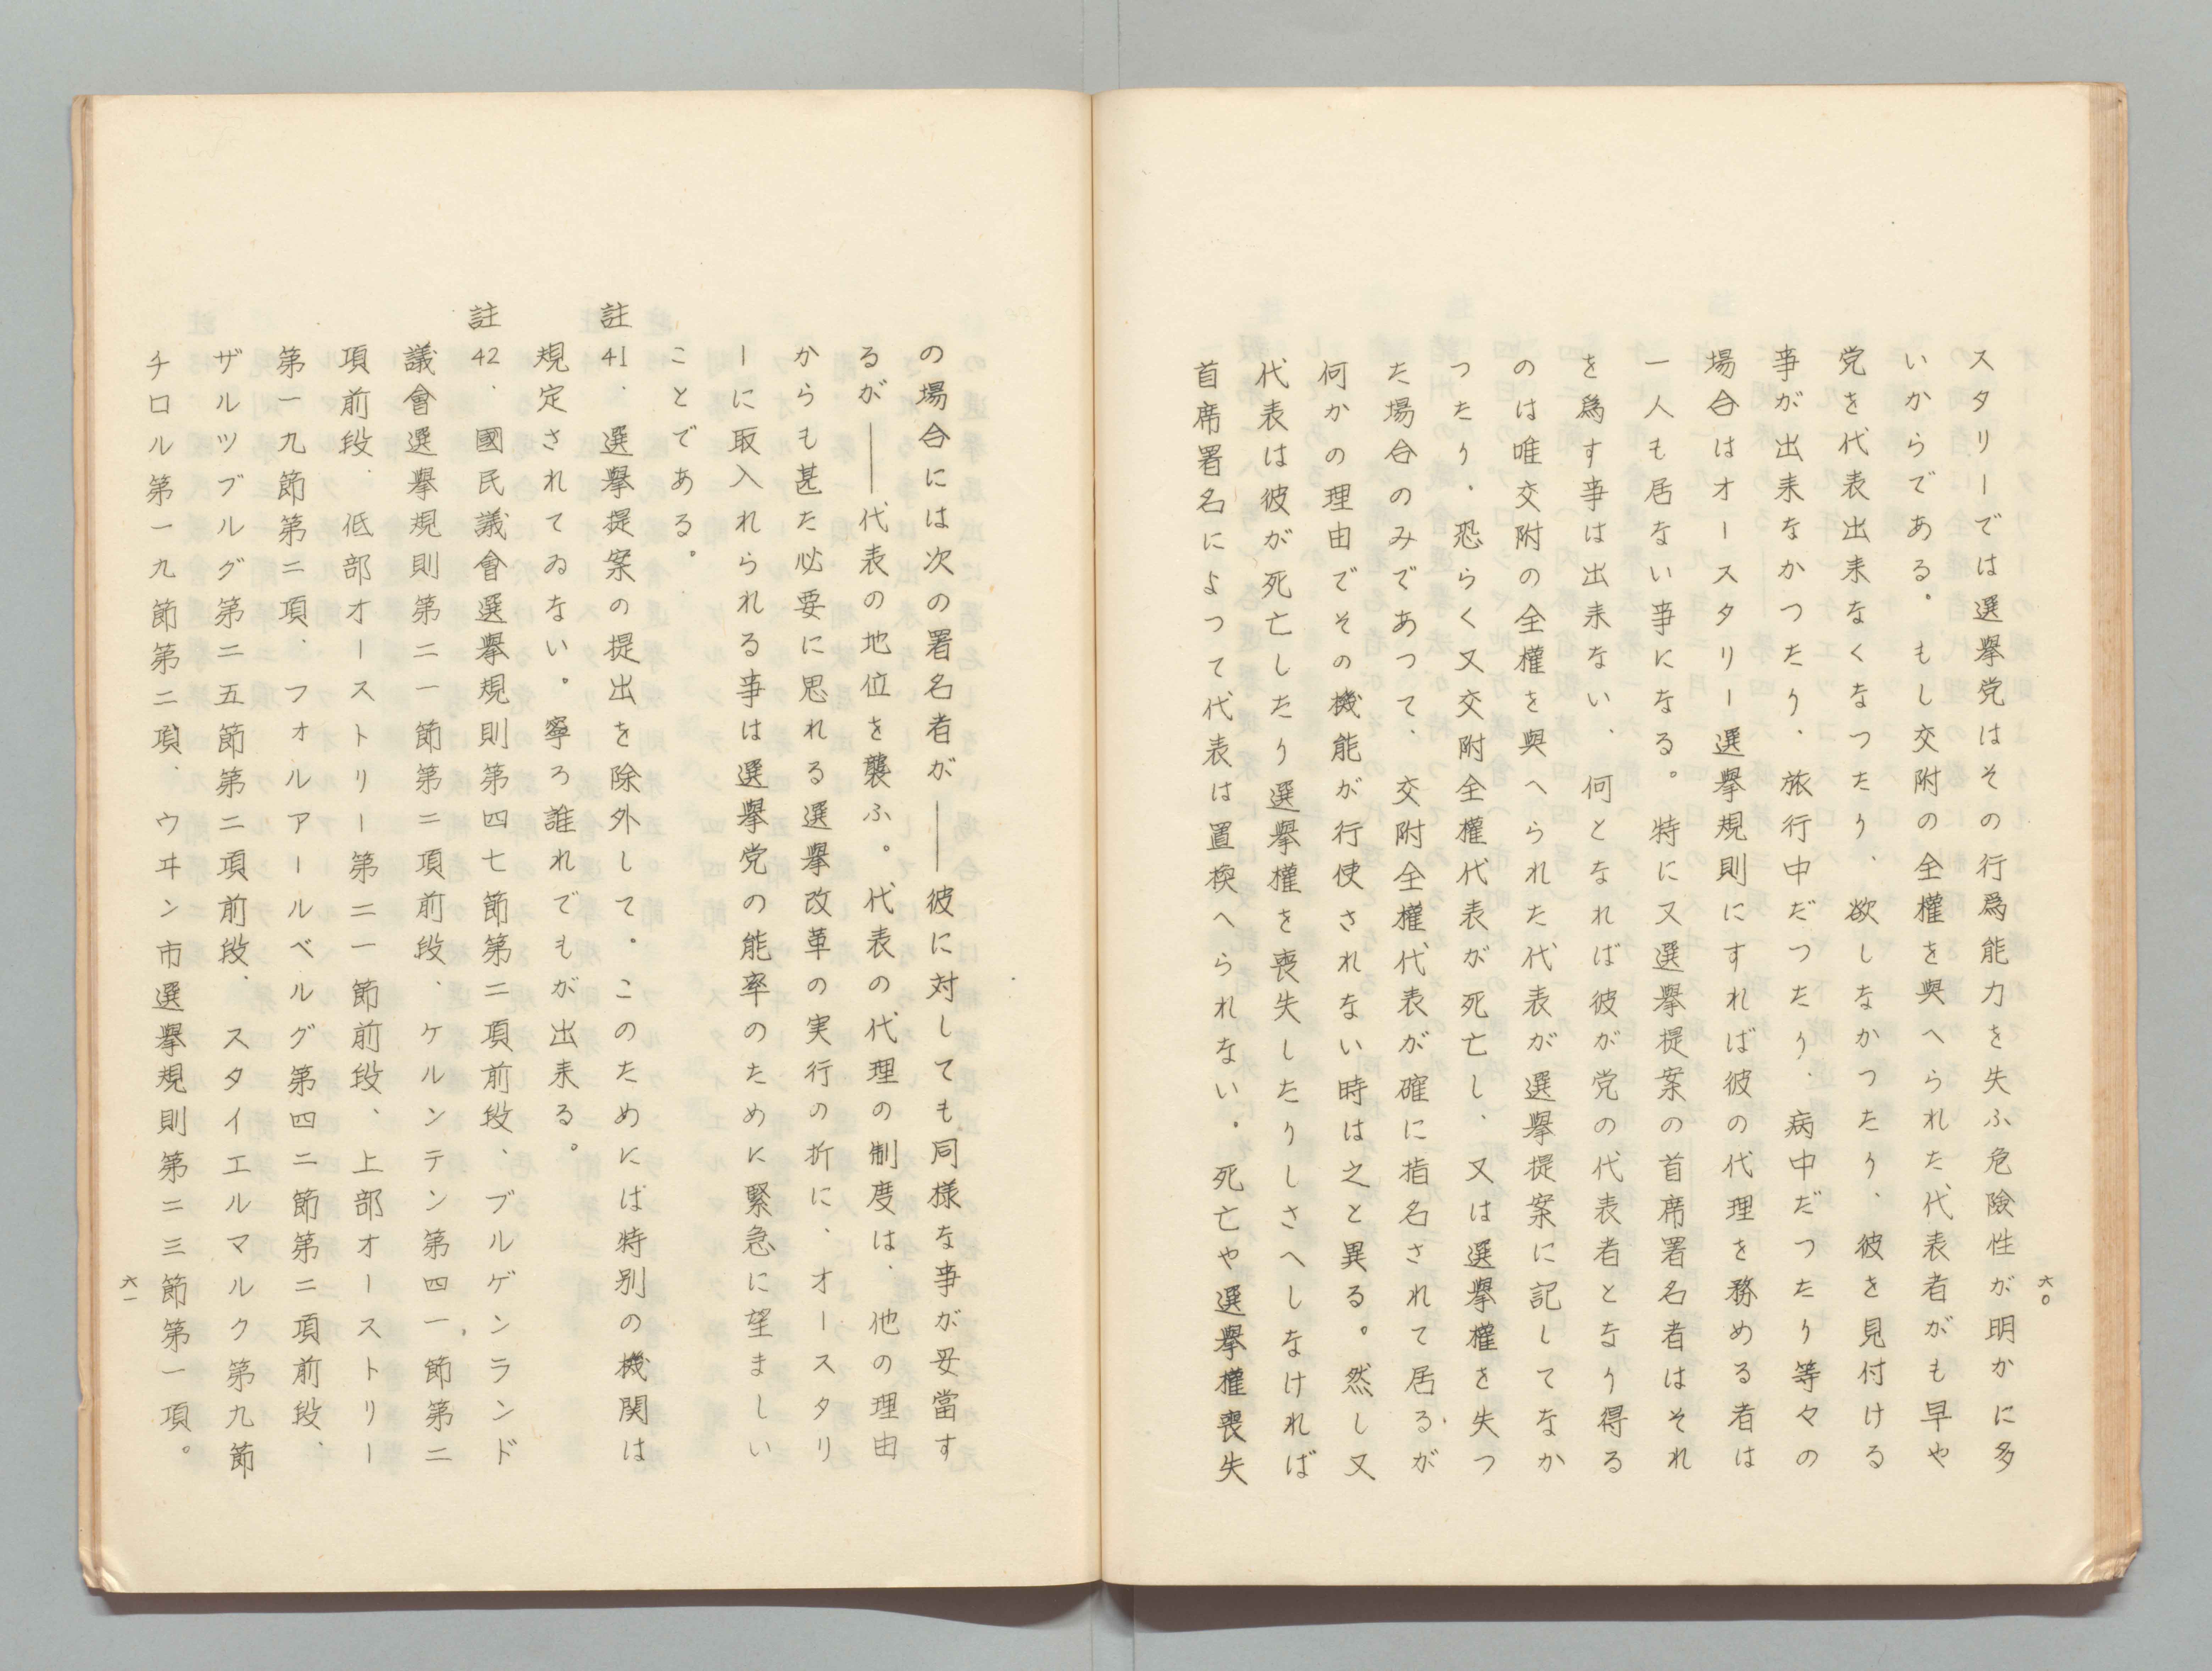 六〇
スタリーでは選擧党はその行爲能力を失ふ危險性が明かに多
いからである。もし交附の全權を與へられた代表者がも早や
党を代表出来なくなつたり、欲しなかつたり、彼を見付ける
事が出来なかつたり、旅行中だつたり、病中だつたり等々の
場合はオースタリー選擧規則にすれば彼の代理を務める者は
一人も居ない事になる。特に又選擧提案の首席署名者はそれ
を爲す事は出来ない、何となれば彼が党の代表者となり得る
のは唯交附の全權を與へられた代表が選擧提案に記してなか
つたり、恐らく又交附全權代表が死亡し、又は選擧權を失つ
た場合のみであつて、交附全權代表が確に指名されて居るが
何かの理由でその機能が行使されない時は之と異る。然し又
代表は彼が死亡したり選擧權を喪失したりしさへしなければ
首席署名によつて代表は置換へられない。死亡や選擧權喪失
の場合には次の署名者が――彼に対しても同様な事が妥當す
るが――代表の地位を襲ふ。代表の代理の制度は、他の理由
からも甚た必要に思れる選擧改革の実行の折に、オースタリ
ーに取入れられる事は選擧党の能率のために緊急に望ましい
ことである。
註41、選擧提案の提出を除外して。このためには特别の機関は
規定されてゐない。寧ろ誰れでもが出来る。
註42、國民議會選擧規則第四七節第二項前段、ブルゲンランド
議會選擧規則第二一節第二項前段、ケルンテン第四一節第二
項前段、低部オーストリー第二一節前段、上部オーストリー
第一九節第二項、フォルアールベルグ第四二節第二項前段、
ザルツブルグ第二五節第二項前段、スタイエルマルク第九節
チロル第一九節第二項、ウヰン市選擧規則第二三節第一項。
六一